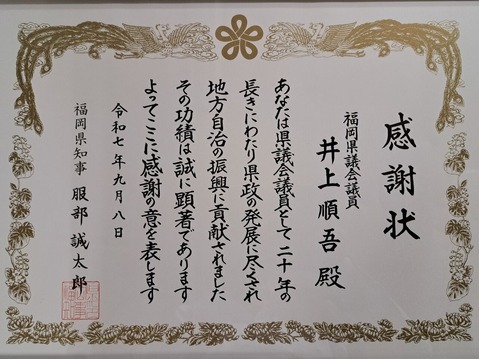 感謝状
福岡県議会議員
井上順吾殿
あなたは県議会議員として二十年の
長きにわたり県政の発展に尽くされ
地方自治の振興に貢献されました
その功績は誠に顕著であります
よってここに感謝の意を表します
令和七年九月八日
福岡県知事 服部誠太郎